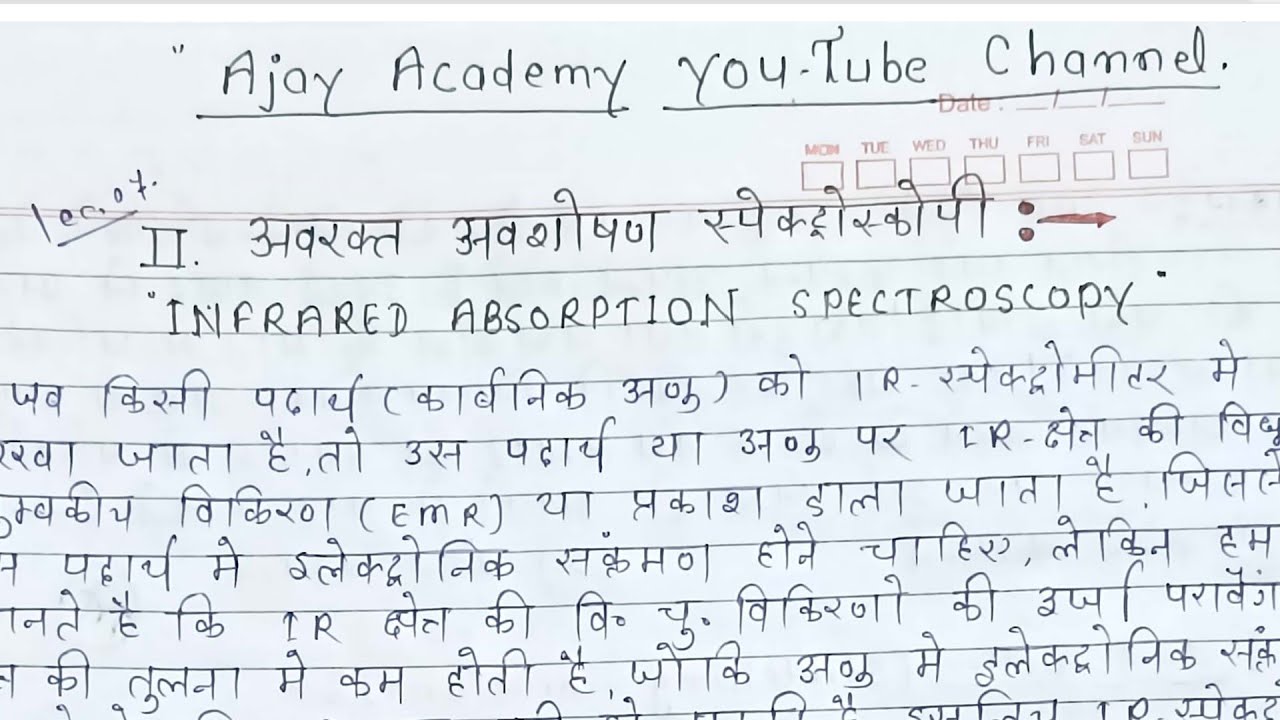 " Ajay Academy You-Tube Channel.
Date : __/__/__
MON TUE WED THU FRI SAT SUN
Lec.07.
II. अवरक्त अवशोषण स्पेक्ट्रोस्कोपी :→
"INFRARED ABSORPTION SPECTROSCOPY"
जब किसी पदार्थ (कार्बनिक अणु) को IR-स्पेक्ट्रोमीटर मे
रखा जाता है, तो उस पदार्थ या अणु पर IR-क्षेत्र की विधु
म्बकीय विकिरण (EMR) या प्रकाश डाला जाता है, जिससे
पदार्थ मे इलेक्ट्रोनिक संक्रमण होने चाहिए, लेकिन हम
नते है कि IR क्षेत्र की वि० चु. विकिरणो की उर्जा पराबैंग
की तुलना मे कम होती है, जोकि अणु मे इलेक्ट्रोनिक संक्र